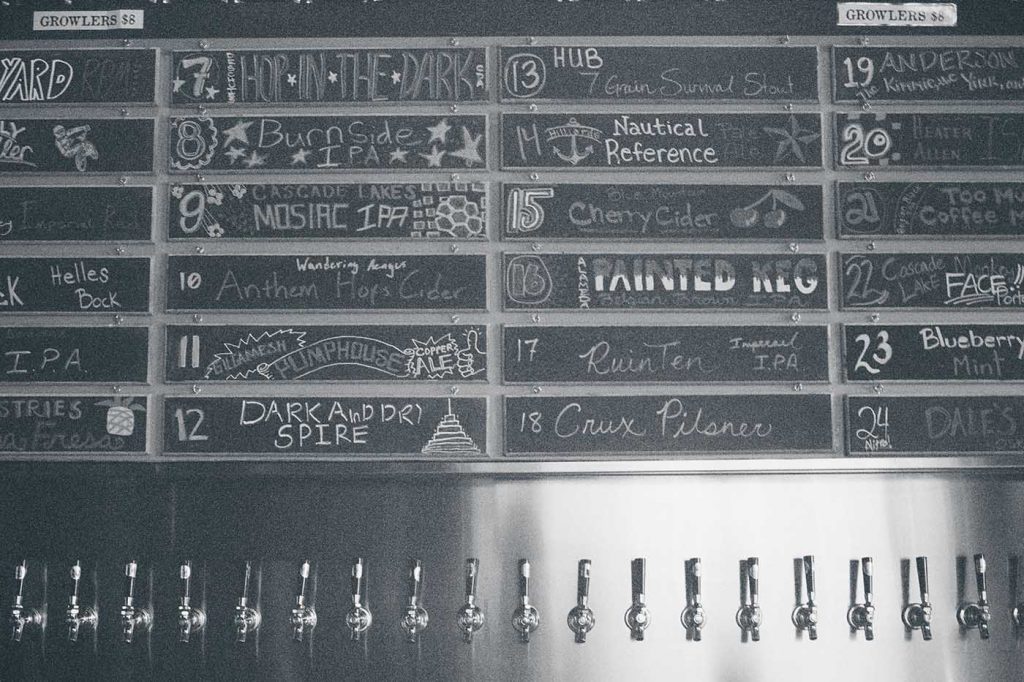 GROWLERS $8
GROWLERS $8
YARD
Imperial Red
Helles
Bock
I.P.A.
STRIES
Fresa
7
HOP-IN-THE-DARK
8
BurnSide
IPA
9
CASCADE LAKES
MOSIAC IPA
10
Wandering Aengus
Anthem Hops Cider
11
GILGAMESH
PUMPHOUSE
COPPER
ALE
12
DARK AnD DRY
SPIRE
13
HUB
7 Grain Survival Stout
14
Nautical
Reference
Pale
Ale
15
Cherry Cider
16
ALAMEDA
PAINTED KEG
Belgian Brown IPA
17
RuinTen
Imperial
I.P.A.
18
Crux Pilsner
19
ANDERSON
The Kimmie, the Yink, and
20
HEATER
ALLEN
21
Too Mu
Coffee M
22
Cascade
LAKE
FACE!!
23
Blueberry
Mint
24
Nitro!
DALE'S